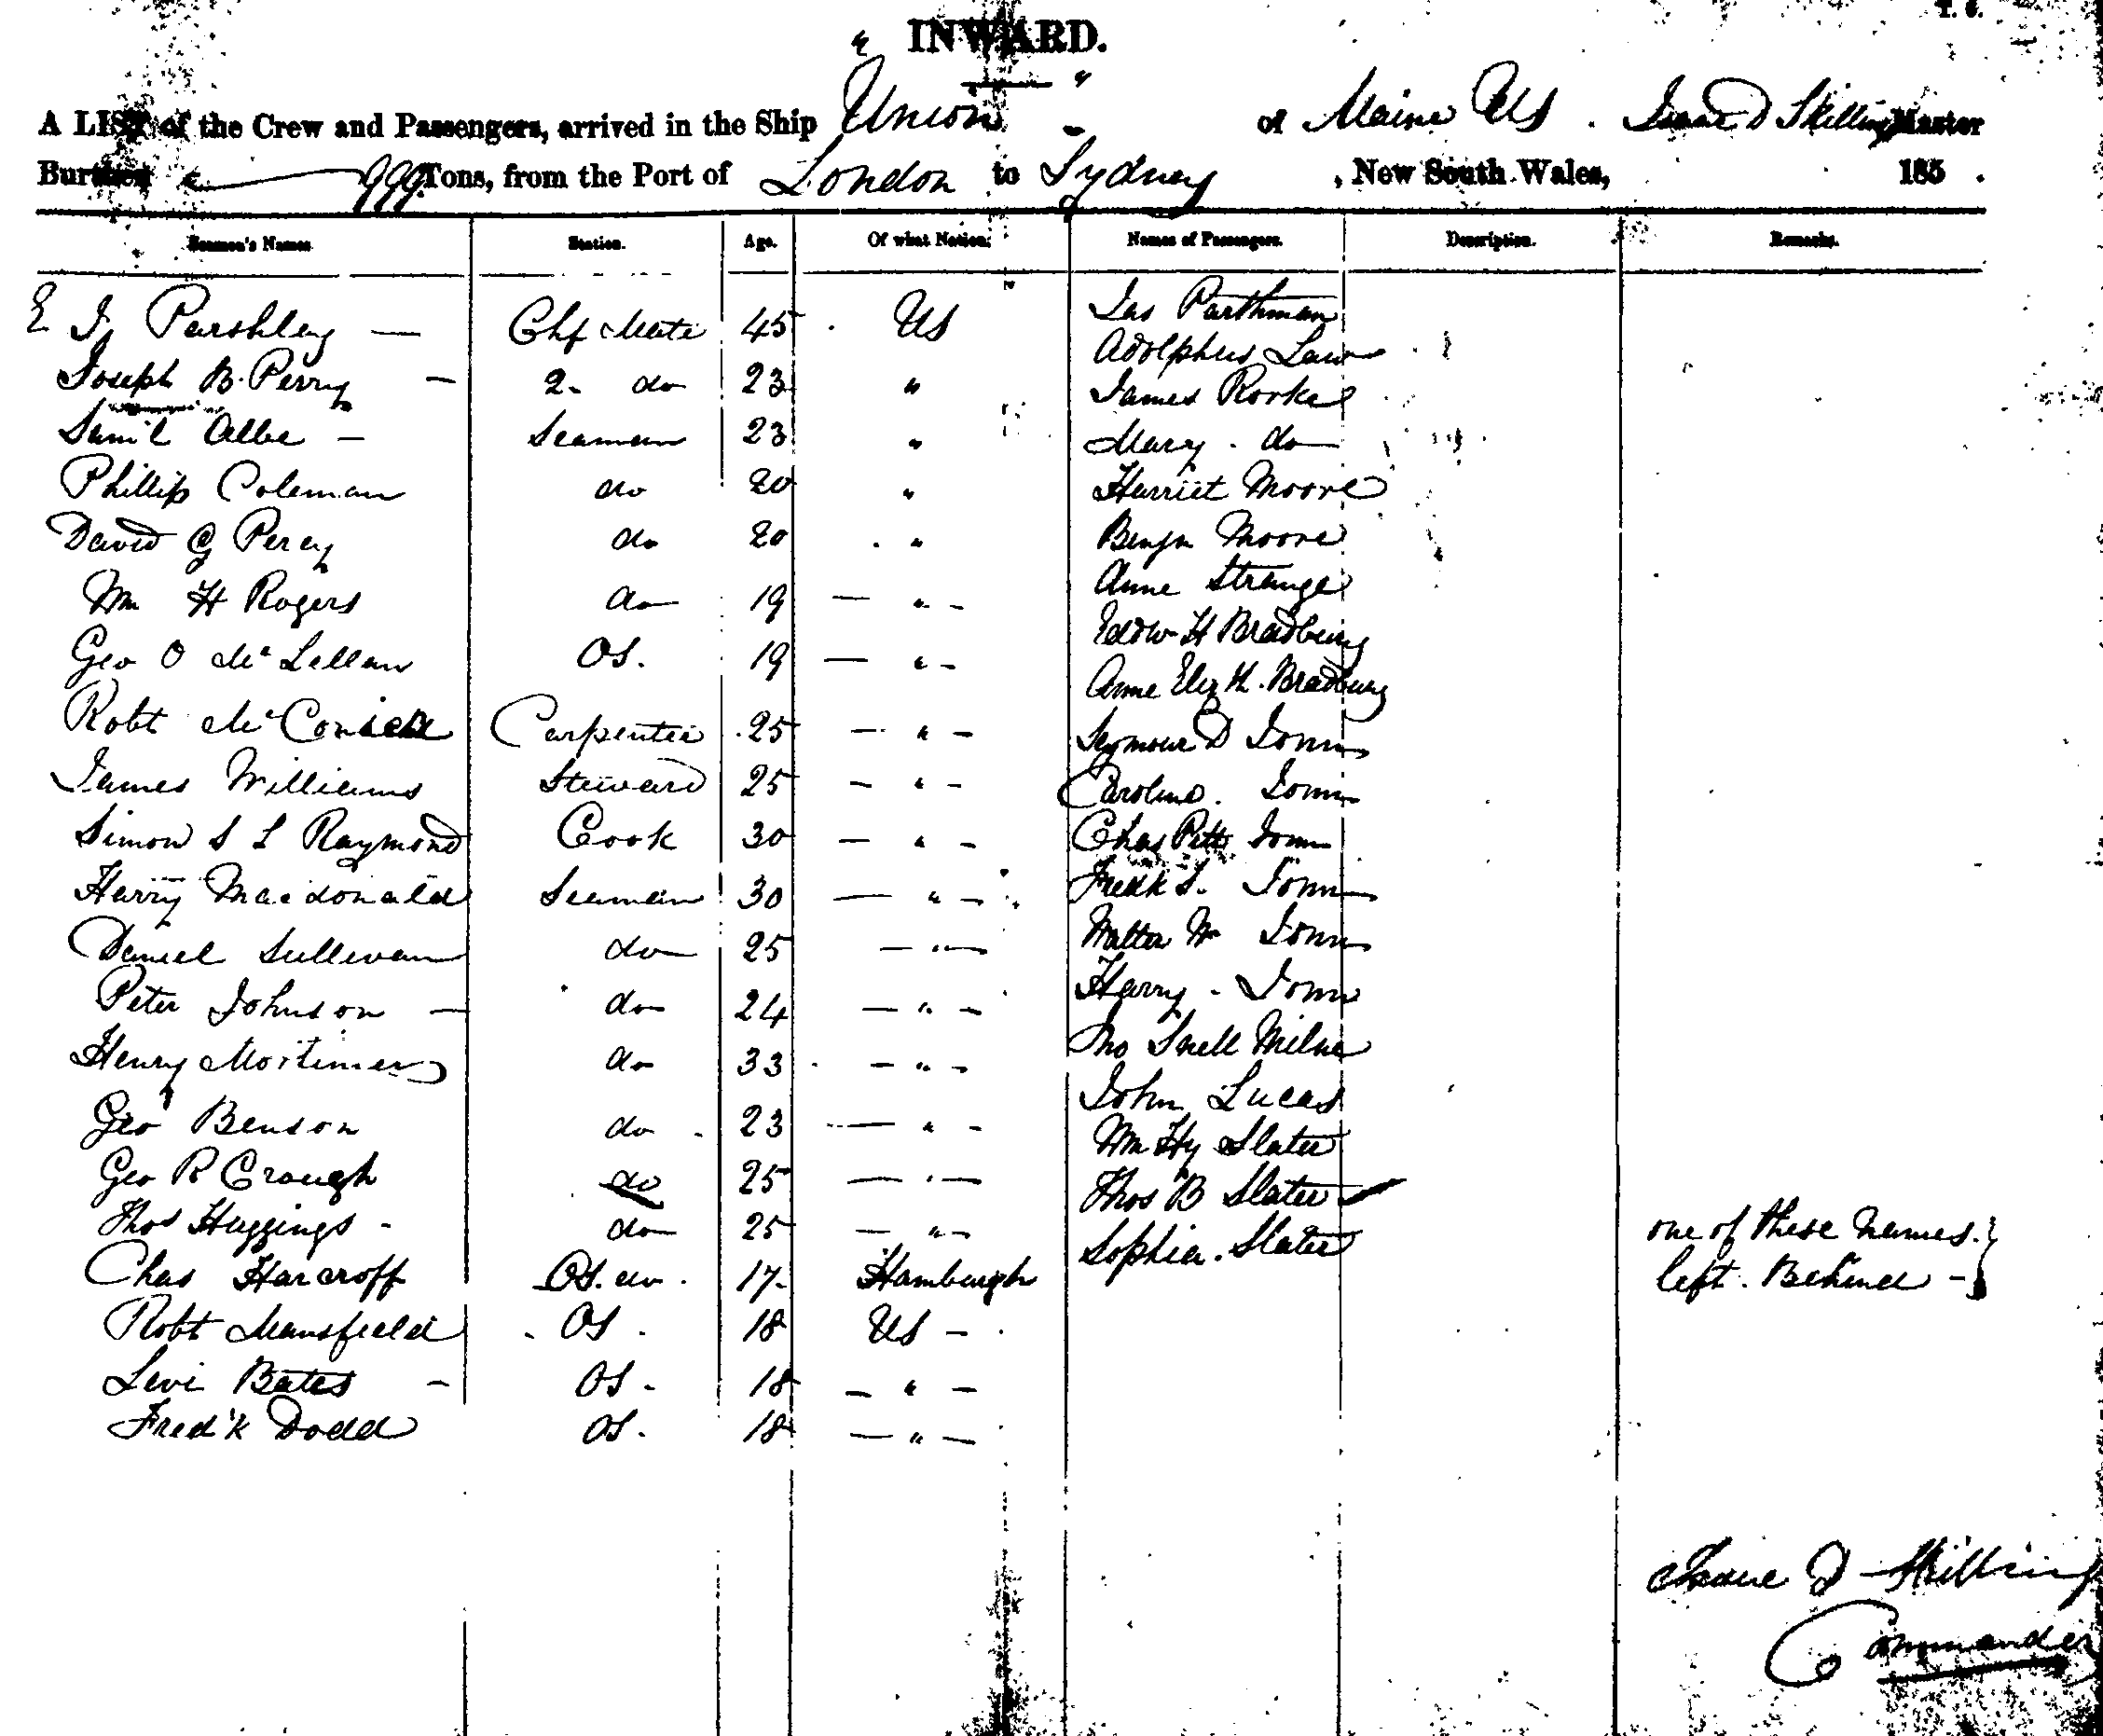 INWARD.
A LIST of the Crew and Passengers, arrived in the Ship "Union" of Maine US. Isaac D Skillings Master
Burthen 999 Tons, from the Port of London to Sydney, New South Wales, 185 .
Seamen's Names Station. Age. Of what Nation. Names of Passengers. Description. Remarks.
E J Parshley — Chf Mate 45 US Jas Parthman
Adolphus Law
Joseph B. Perry — 2. do 23 " James Rorke
Saml Albe — Seaman 23 " Mary . do
Phillip Coleman do 20 " Harriet Moore
David G Percy do 20 " Benjn Moore
Anne Strange
Wm H Rogers do 19 — " - Edow H Bradbury
Geo O McLellan OS. 19 — " - Anne Elizth. Bradbury
Robt Mc Carpenter 25 — " — Seymour D
James Williams Steward 25 — " — Caroline.
Simon S L Raymond Cook 30 — " — Chas Pitt
Harry Macdonald Seaman 30 — " — Fredk S.
Daniel Sullivan do 25 — " — Walter Wm
Peter Johnson — do 24 — " — Harry -
Henry Mortimer do 33 — " — Jno Snell Milne
John Lucas
Geo Benson do 23 — " - Wm Hy Slater
Geo R Crough do 25 — " — Thos B Slater
Thos Huggings - do 25 — " - Sophia. Slater one of these names.
Chas Harcroff OS. do. 17 Hamburgh left. Behind -
Robt Mansfield OS. 18 US -
Levi Bates — OS. 18 — " —
Fred'k Dodd OS. 18 — " —
Isaac D Skilling
Commander